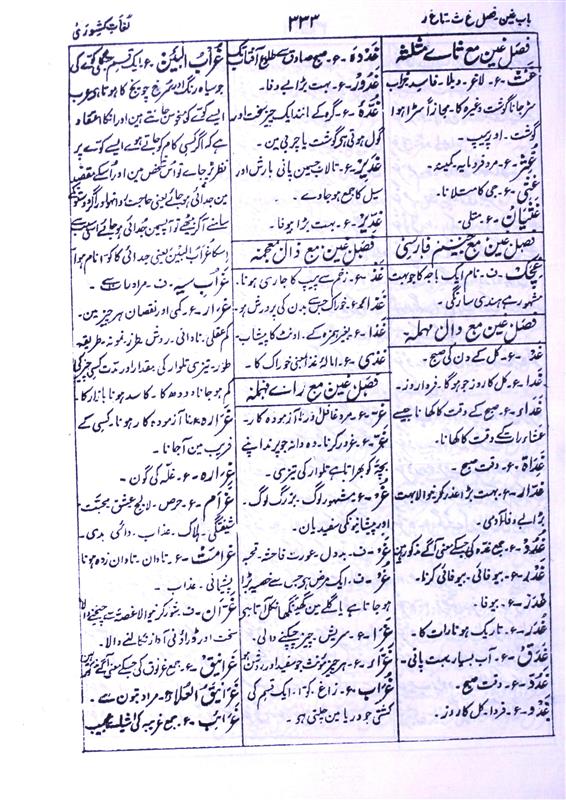 باب غین فصل غ ث تا غ ر
۳۳۳
لغات کشوری
فصل غین مع ثاے مثلثہ
غث - ع - لاغر - دبلا - فاسد خراب
سڑجانا گوشت وغیرہ کا - مجازاً سڑا ہوا
گوشت - اور پیپ -
غثر - ع - مرد فرومایہ - کمینہ -
غثی - ع - جی کا متلانا -
غثیان - ع - متلی -
فصل غین مع جیم فارسی
غچک - ف - نام ایک باجہ کا جو بہت
مشہور ہے ہندی سارنگی -
فصل غین مع دال مہملہ
غد - ع - کل کے دن کی صبح -
غدا - ع - کل کا روز جو ہوگا - فردا روز -
غداء - ع - صبح کے وقت کا کھانا جیسے
عشا رات کے وقت کا کھانا -
غداة - ع - وقت صبح -
غدار - ع - بہت بڑا غدر کرنیوالا بہت
بڑا بے وفا آدمی -
غدد - ع - جمع غدہ کی جسکے معنی آگے مذکور ہین
غدر - ع - بیوفائی - بیوفائی کرنا -
غدر - ع - بیوفا -
غدر - ع - تاریک ہونا رات کا -
غدق - ع - آب بسیار بہت پانی -
غدو - ع - وقت صبح -
غدو - ع - فردا - کل کا روز -
غدوہ - ع - صبح صادق سے طلوع آفتاب تک
غدور - ع - بہت بڑا بے وفا -
غدہ - ع - گرہ کے مانند ایک چیز سخت اور
گول ہوتی ہے گوشت یا چربی مین -
غدیر - ع - تالاب جسمین پانی بارش اور
سیل کا جمع ہو جاوے -
غدیر - ع - بہت بڑا بیوفا -
فصل غین مع ذال معجمہ
غذ - ع - زخم سے پیپ کا جاری ہونا -
غذا - ع - خوراک جس سے بدن کی پرورش ہو
غذا - ع - بغیر ہمزہ کے - اونٹ کا پیشاب -
غذی - ع - امالہ غذا بمعنی خوراک کا -
فصل غین مع راے مہملہ
غر - ع - مرد غافل اور نا آزمودہ کار -
غر - ع - غرور کرنا - وہ دانہ جو پرند اپنے
بچہ کو بھراتا ہے تلوار کی تیزی -
غر - ع - مشہور لوگ - بزرگ لوگ -
اور پیشانیونکی سفیدیان -
غر - ف - بددل - عورت فاحشہ قحبہ
غر - ف - ایک مرض ہے جس سے خصیہ بڑا
ہو جاتا ہے یا گلے مین گھینگھا نکل آتا ہے
غرا - ع - سریش - چیز چپکنے والی -
غراء - ع - ہر چیز مونث جو سفید اور روشن ہو
غراب - ع - زاغ - کوا - ایک قسم کی
کشتی جو دریا مین چلتی ہو -
غراب البین - ع - ایک قسم جنگلی کوے کی
جو سیاہ رنگ اور سرخ چونچ کا ہوتا ہے عرب
ایسے کوے کو منحوس جانتے ہین اور انکا اعتقاد
ہے کہ اگر کسی کام کو جاتے ہوے ایسے کوے پر
نظر پڑ جاے تو اس شخص مین اور اسکے مقصد
مین جدائی ہو جاے یعنی حاجت روا نہو اور اگر دو شخص
سامنے اسکو دیکھے تو آپسمین جدائی ہو جائے اسی سبب سے
اسکا غراب البین یعنی جدائی کا کوا نام ہوا
غراب سیہ - ف - مراد رات سے -
غرار - ع - کمی اور نقصان ہر چیز مین -
کم عقلی - نادانی - روش - طرز - نمونہ - طریقہ
طور - تیزی تلوار کی مقدار اور مدت کسی چیز کی
کم ہوجانا دودھ کا - کاسد ہونا بازار کا -
غرارہ - نا آزمودہ کار ہونا - کسی کے
فریب مین آجانا -
غرارہ - ع - غلہ کی گون -
غرام - ع - حرص - لالچ عشق محبت -
شیفتگی - ہلاک - عذاب - دائمی بدی -
غرامت - ع - تاوان - تاوان زدہ ہونا
پشیمانی - عذاب -
غران - ف - شور کرنیوالا غصہ سے چیخنے والا
سخت اور ڈراؤنی آواز نکالنے والا -
غرانیق - ع - جمع غرنوق کی جسکے معنی آگے آتے ہین
غرانیق العلا - مراد بتون سے -
غرائب - ع - جمع غریبہ کی اشیاے عجیب